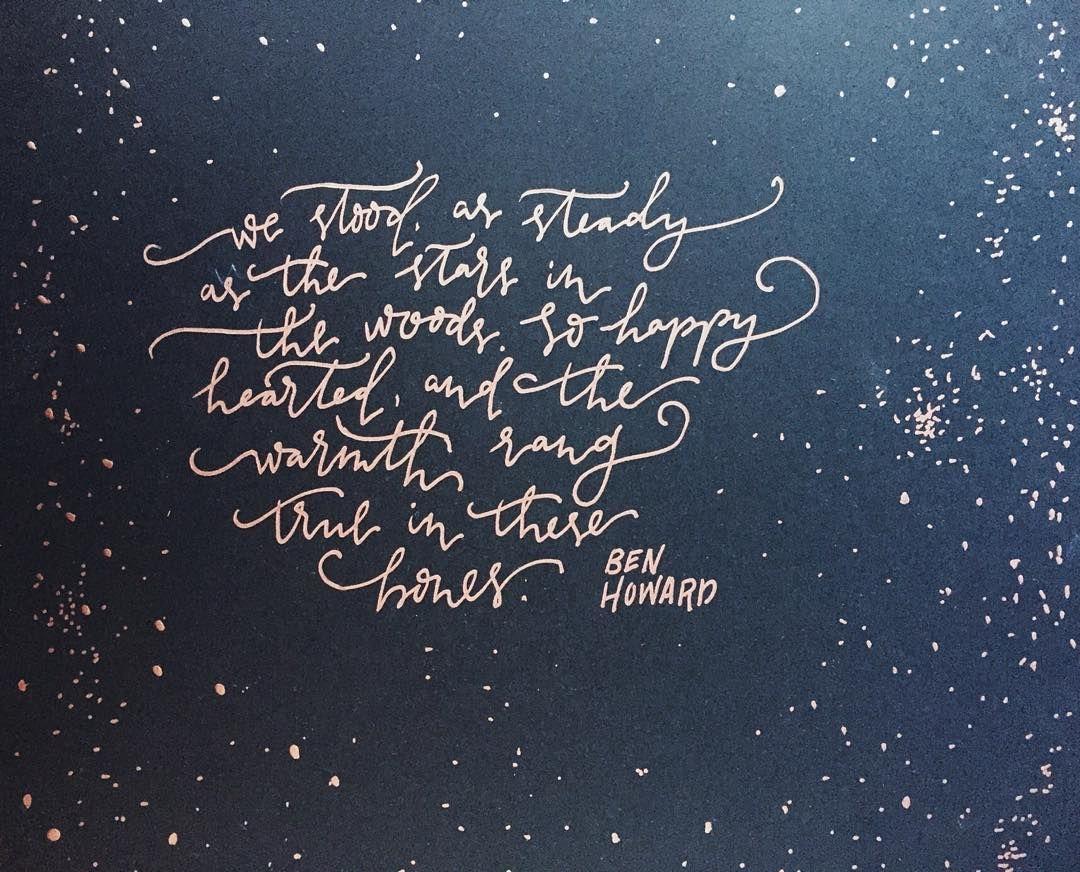 we stood, as steady
as the stars in
the woods, so happy
hearted, and the
warmth rang
true in these
bones.
BEN
HOWARD